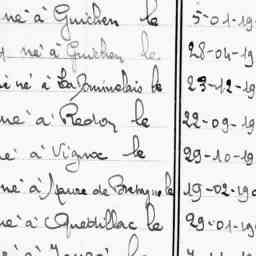 né à Guichen le 5-01-19
né à Guichen le 28-04-19
né à La Dominelais le 23-12-19
né à Redon le 22-09-19
né à Vignoc le 29-10-19
né à Maure de Bretagne le 19-02-19
né à Quédillac le 29-01-19